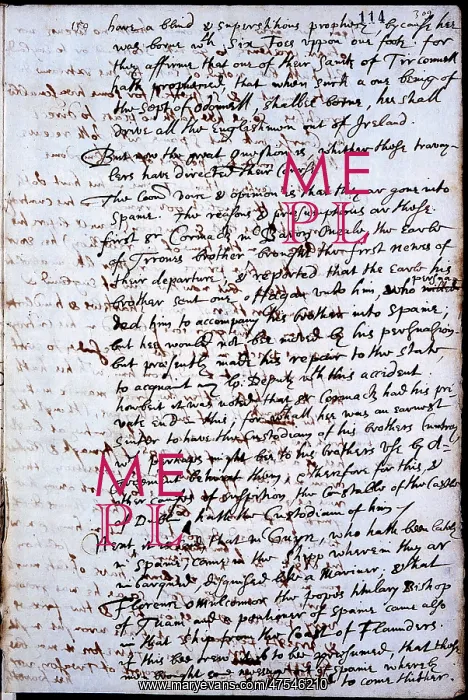 150 114 302
have a blind & superstitious prophecy, because hee
was borne wth six toes uppon one foot: for
they affirme that one of their Saints of Tirconnell
hath prophecied, that when such a one being of
the sept of odonnell shalbe borne, hee shall
drive all the Englishmen out of Ireland.
But now the great question is, whither those travay-
lers have directed their
The voice & opinion is that they ar gone into
Spaine. The reasons & presumptions ar these.
first Sr Cormack mc Baron the Earle
of Tirones brother, brought the first newes of
their departure, & reported that the Earle his
brother sent one unto him, who
ded him to accompany his brother into Spaine;
but hee would not bee moved by his persuasion
but presently made his repaire to the State
to acquaint my lo. Deputy wth this accident.
howbeit it was noted that Sr Cormack had his pri-
vate end in this; for wthall hee was an earnest
suitor to have the Custodiam of his brothers Cuntry
wch perhaps might bee to his brothers use by a-
greement betwixt them; & therefore for this, &
other causes of suspition, the Constable of the Castle
of Dublin hath the Custodiam of him.
Next it is that Mc Guyre, who hath been lately
in Spaine came in the shipp wherein they ar
imbarqued disguised like a Mariner, & that
Florence omulconor the popes titulary Bishop
of Tuam and a pentioner of Spaine came also
in that ship from the Coast of Flaunders.
if this bee true it is to bee presumed, that those
men brought some of Spaine whereby
to come thither.
ME
PL
ME
PL
www.maryevans.com/47546210